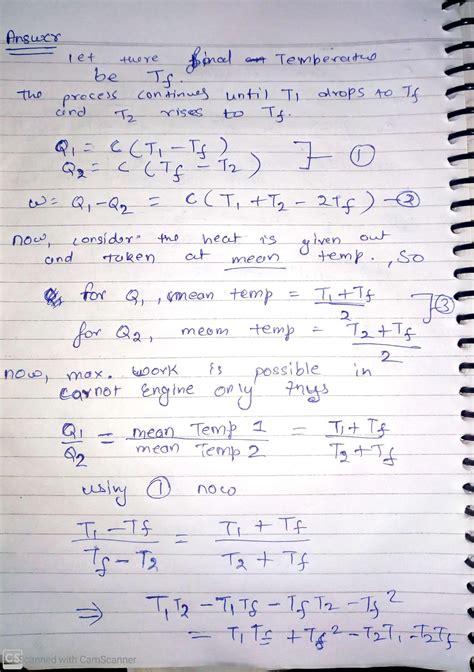 Answer
let there final Temperature
be Tf.
The process continues until T1 drops to Tf
and T2 rises to Tf.
Q1 = C (T1 - Tf)
Q2 = C (Tf - T2) ] - ①
w = Q1 - Q2 = C (T1 + T2 - 2Tf) - ②
now, consider the heat is given out
and taken at mean temp., so
for Q1, mean temp = T1 + Tf / 2
for Q2, mean temp = T2 + Tf / 2 ] ③
now, max. work is possible in
carnot Engine only
Q1 / Q2 = mean Temp 1 / mean Temp 2 = T1 + Tf / T2 + Tf
using ① now
T1 - Tf / Tf - T2 = T1 + Tf / T2 + Tf
⇒ T1T2 - T1Tf - TfT2 - Tf²
= T1Tf + Tf² - T2T1 - T2Tf
CS Scanned with CamScanner